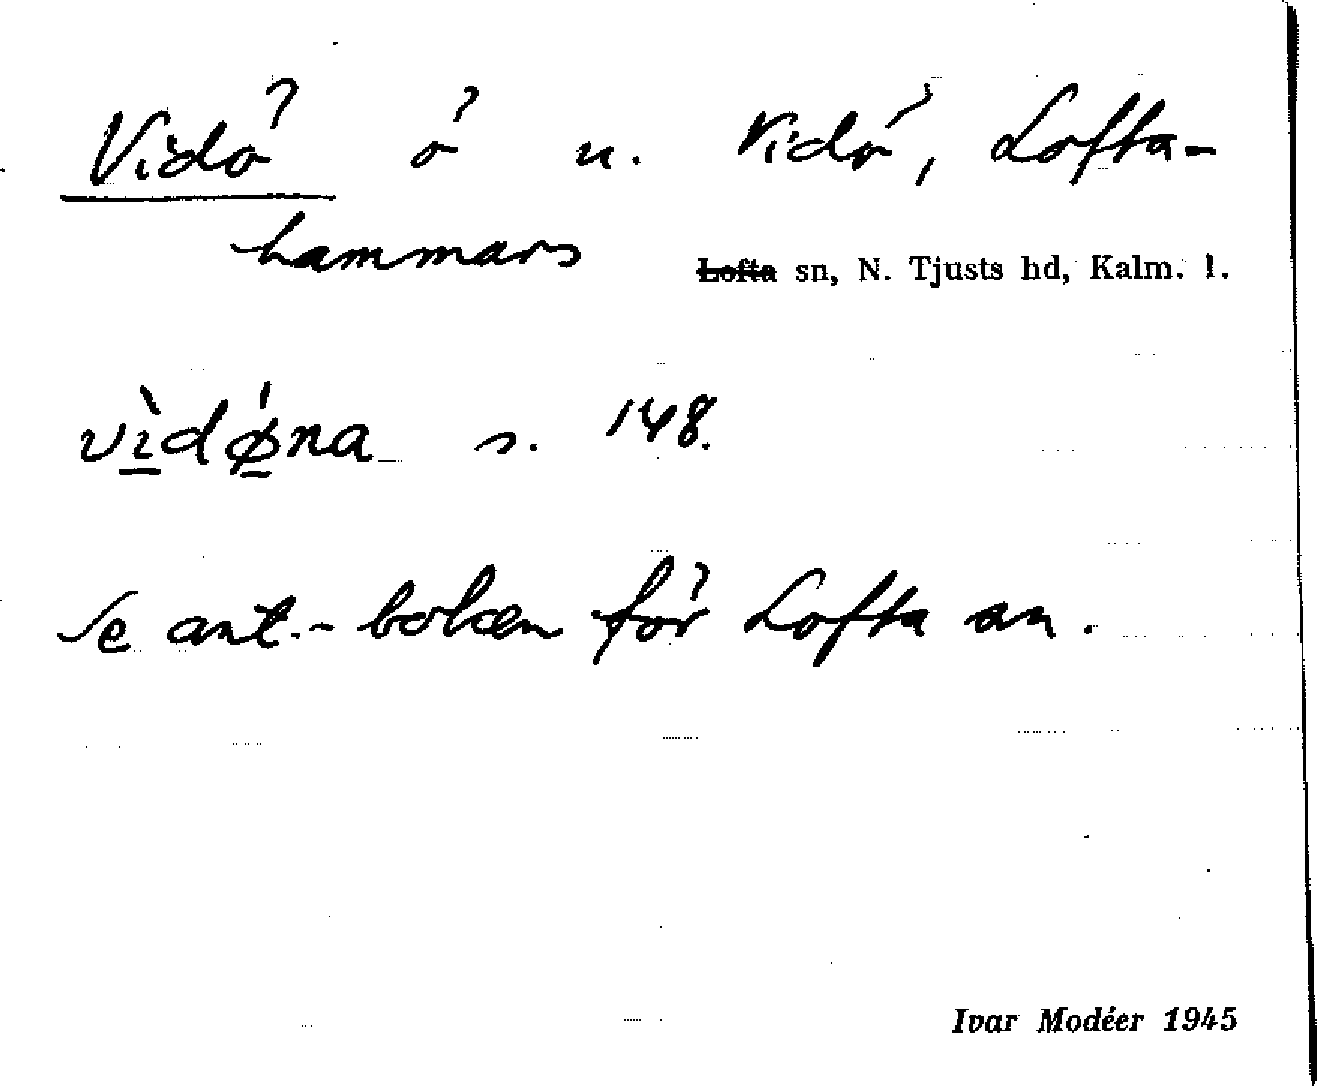 Vidö ö u. Vidö, Lofta-
hammars Lofta sn, N. Tjusts hd, Kalm. l.
vìdǿna s. 148.
Se ant.-boken för Lofta sn.
Ivar Modéer 1945